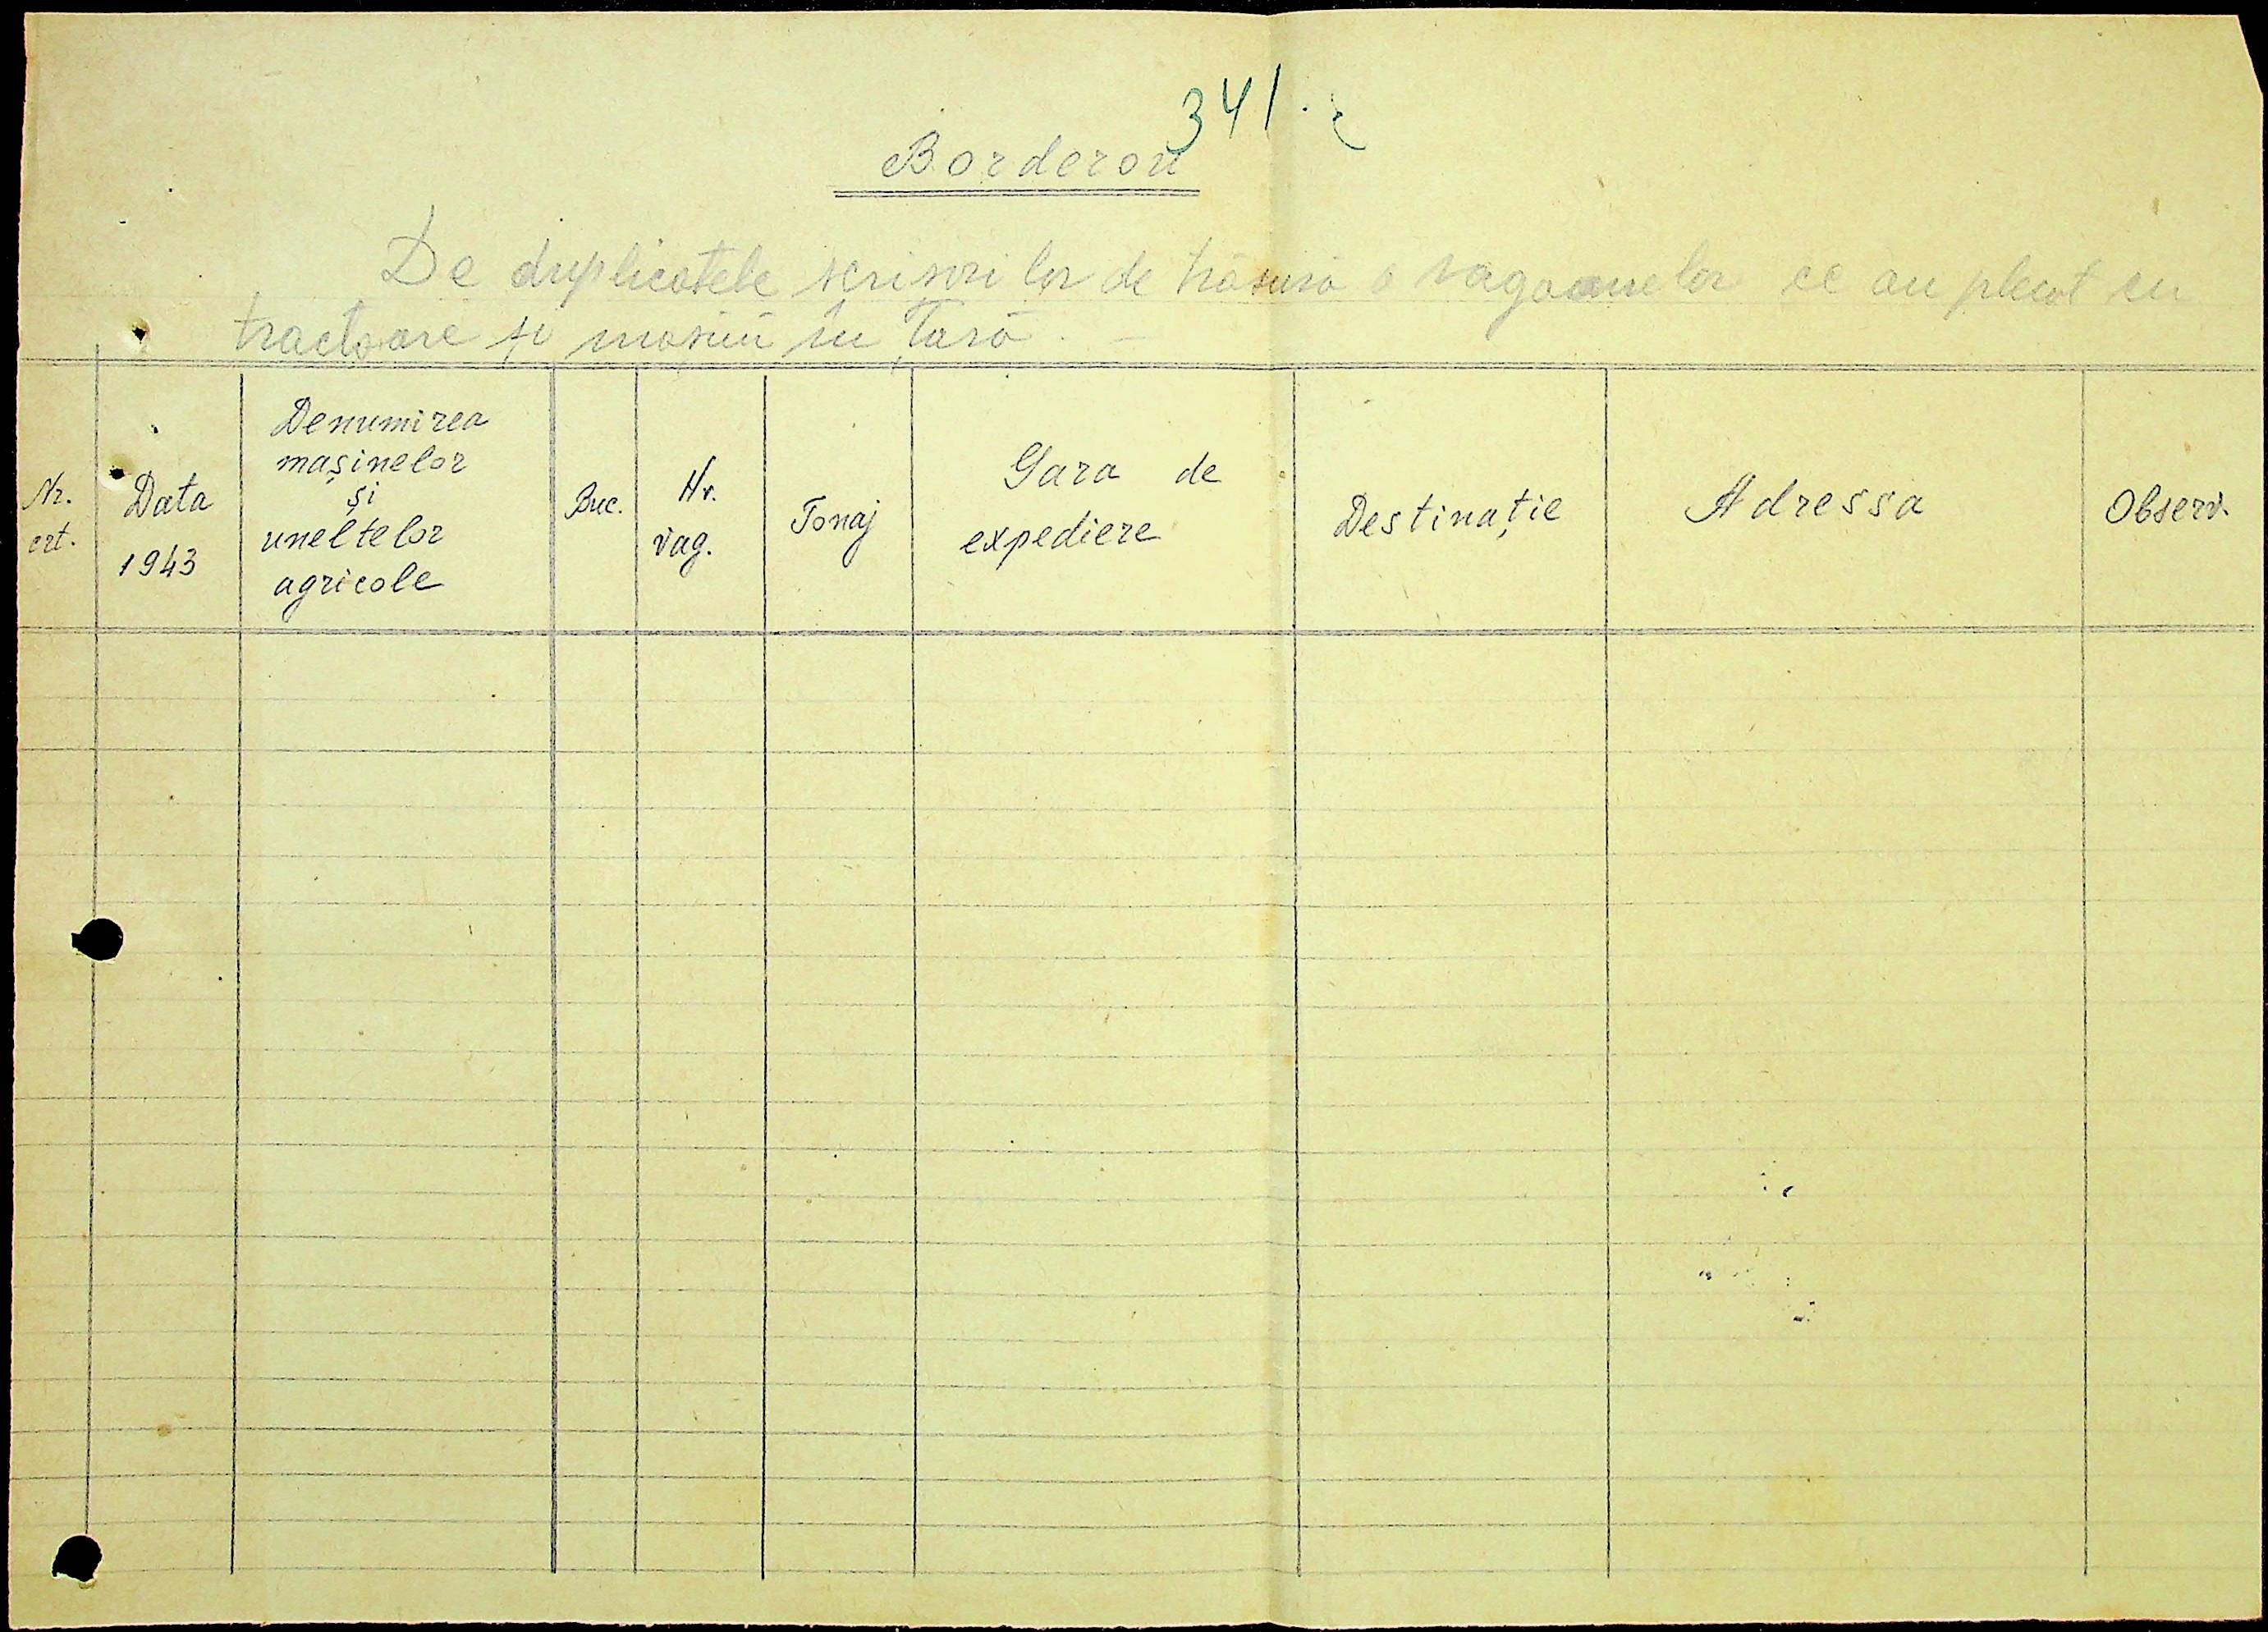 341.
Borderou
De duplicatele scrisorilor de trăsură a vagoanelor ce au plecat cu
tractoare și mașini în Țară. —
Nr.
crt.
Data
1943
Denumirea
mașinelor
și
uneltelor
agricole
Buc.
Nr.
vag.
Tonaj
Gara de
expediere
Destinație
Adressa
Observ.